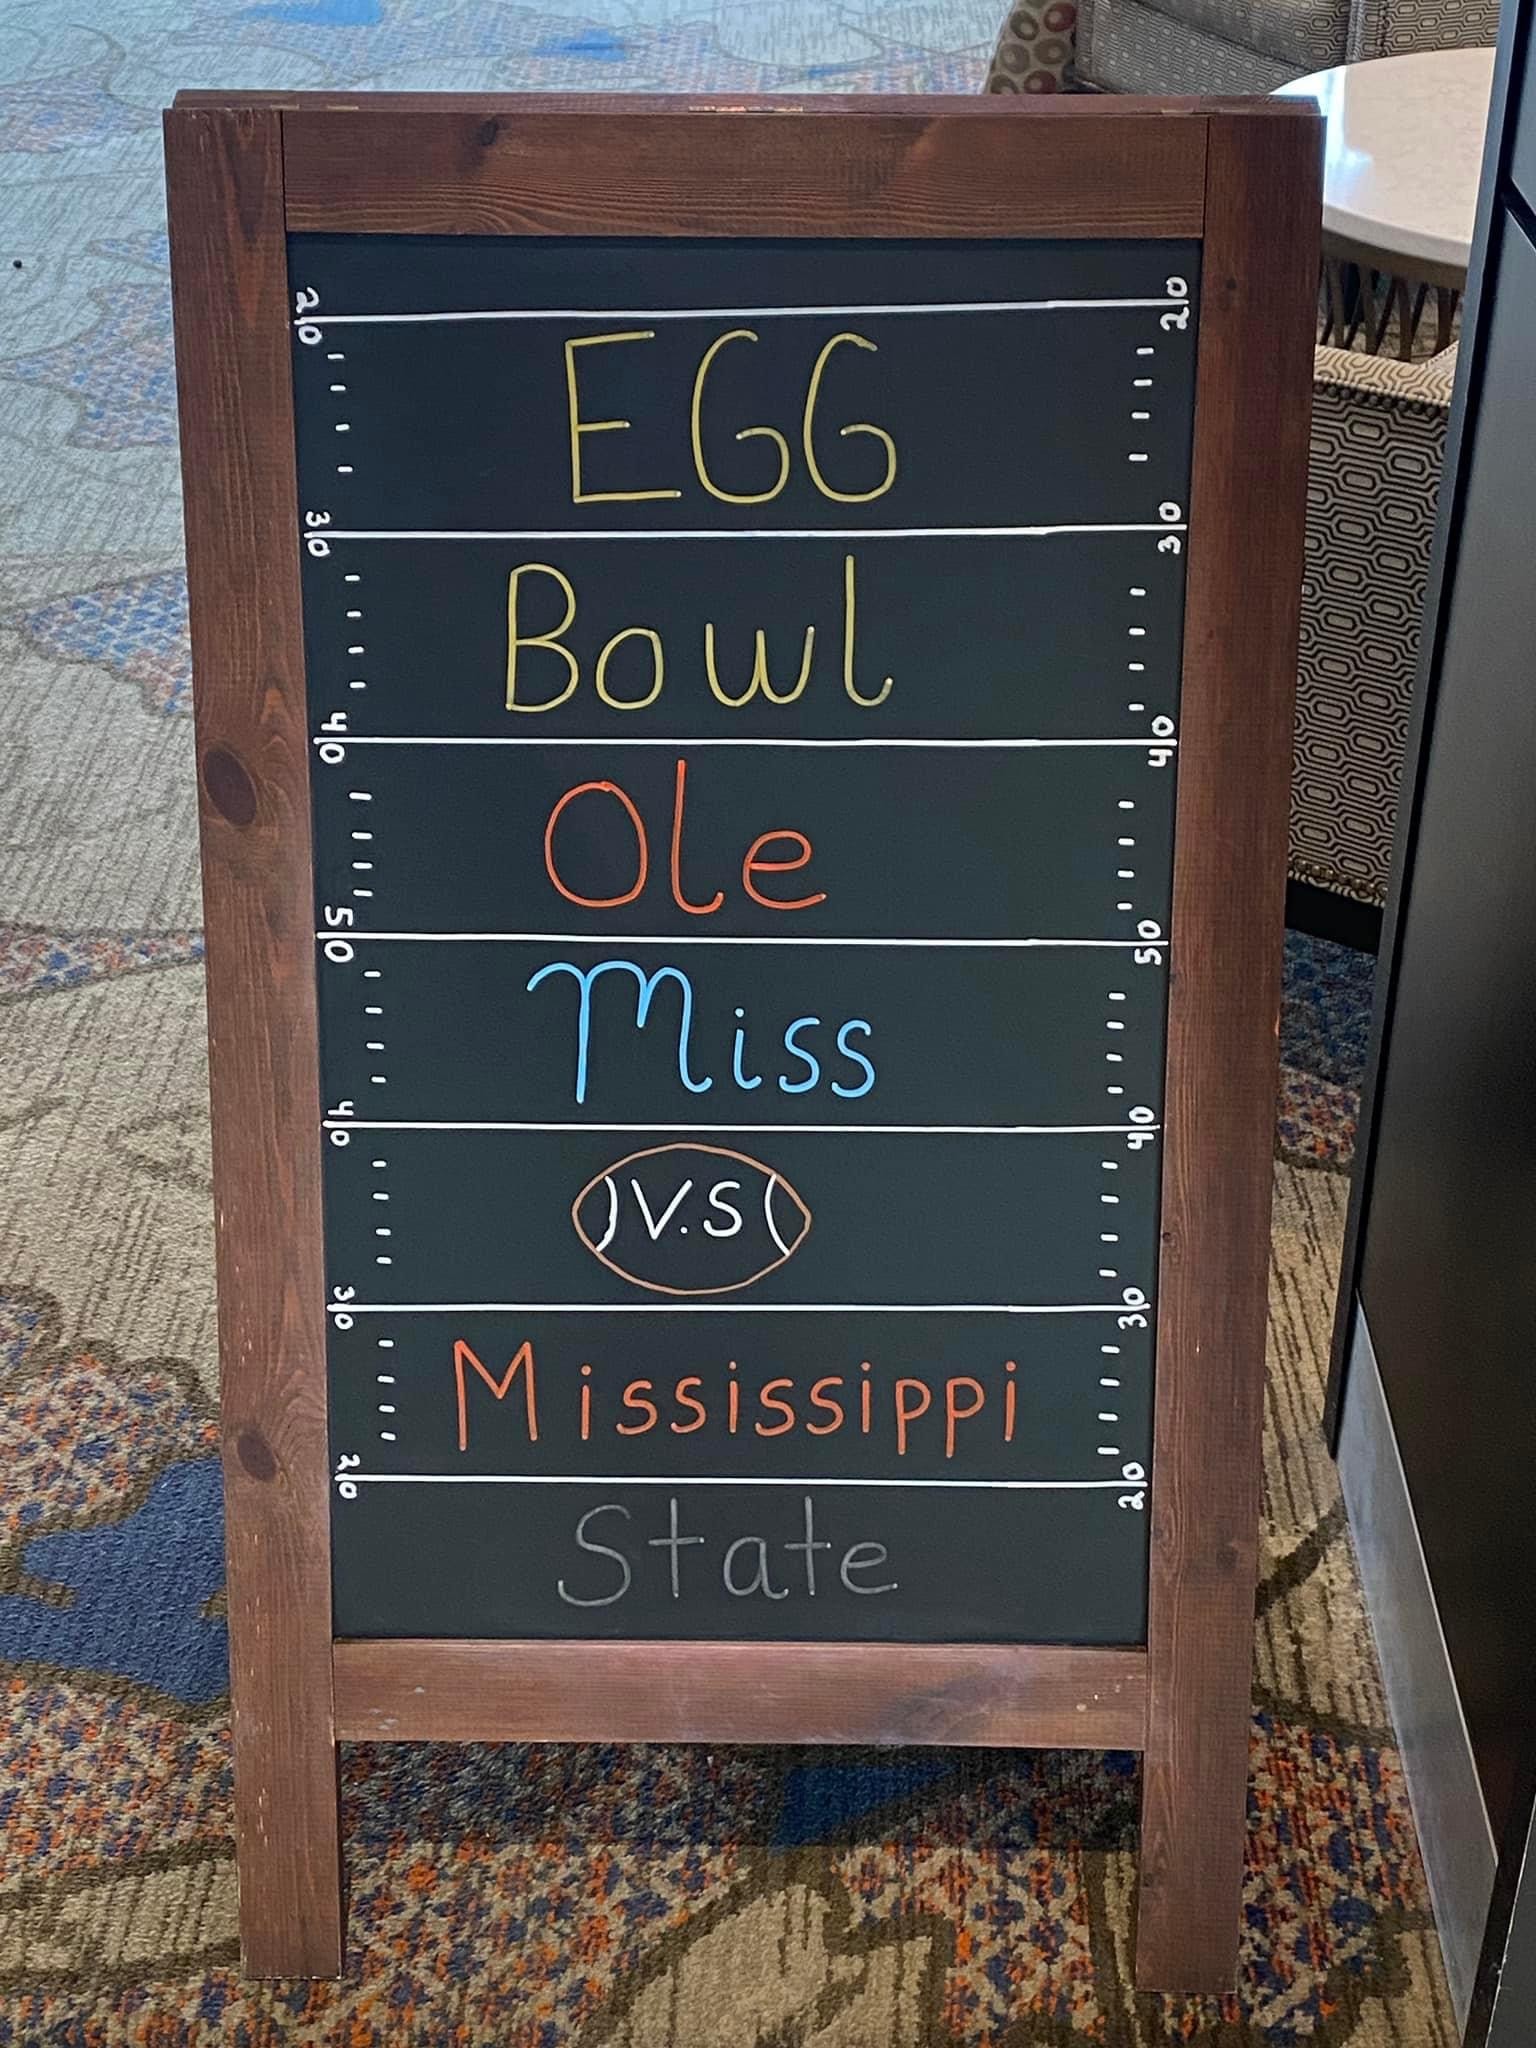 20 20
EGG
30 30
Bowl
40 40
Ole
50 50
Miss
40 40
V.S
30 30
Mississippi
20 20
State